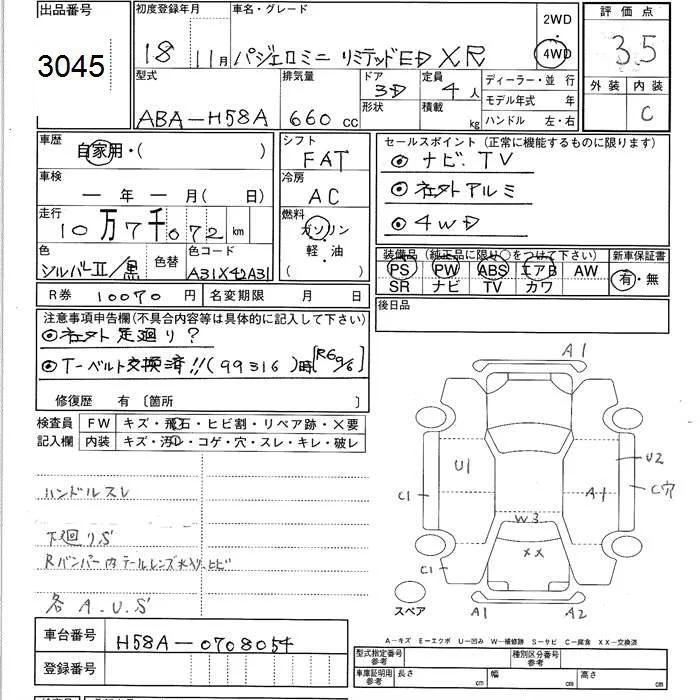 出品番号
3045
初度登録年月
18 11月
車名・グレード
パジェロミニ リミテッドED XR
2WD
4WD
評価点
3.5
外装 内装
C
型式
ABA-H58A
排気量
660 cc
ドア
3D
形状
定員
4人
積載
kg
ディーラー・並 行
モデル年式 年
ハンドル 左・右
車歴
自家用・( )
シフト
FAT
セールスポイント (正常に機能するものに限ります)
◎ ナビ、TV
◎ 社外アルミ
◎ 4WD
車検
ー 年 ー 月( 日)
冷房
AC
走行
10万7千072 km
燃料
ガソリン
軽・油
( )
色
シルバーⅡ/黒
色替
色コード
A31X42A31
装備品 (純正品に限り○をつけて下さい)
PS PW ABS エアB AW
SR ナビ TV カワ
新車保証書
有・無
R券 10070 円
名変期限 月 日
後日品
注意事項申告欄(不具合内容等は具体的に記入して下さい)
◎社外足廻り?
◎T-ベルト交換済!!(99316)時[R6 9/6]
修復歴 有 〔箇所 〕
検査員
記入欄
FW キズ・飛石・ヒビ割・リペア跡・×要
内装 キズ・汚レ・コゲ・穴・スレ・キレ・破レ
ハンドルスレ
下廻りS
Rバンパー内テールレンズ水入りヒビ
各 A.U.S
A1
U1
U2
C1
A1
C穴
W3
××
C1
スペア
A1
A2
A-キズ E-エクボ U-凹み W-補修跡 S-サビ C-腐食 XX-交換済
車台番号
H58A-0708054
登録番号
型式指定番号
参考
種別区分番号
参考
車庫証明用
参考
長さ cm
幅 cm
高さ cm